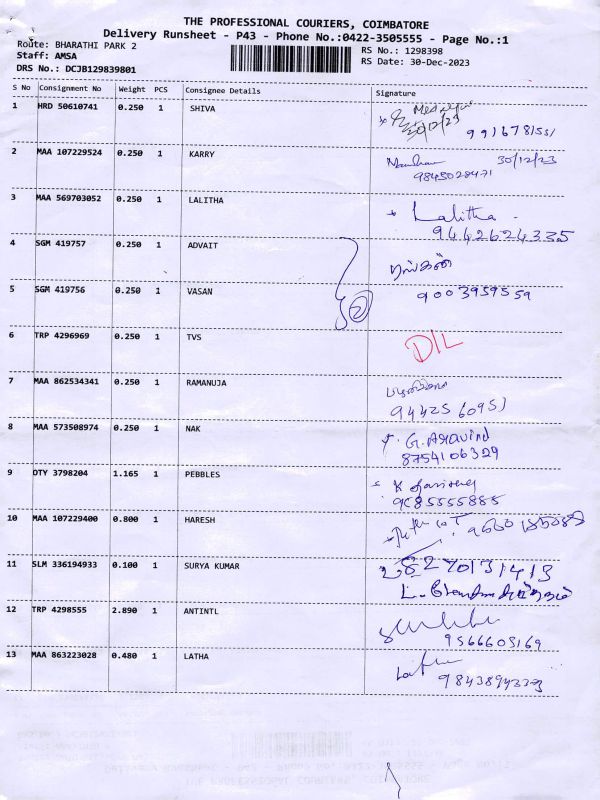 THE PROFESSIONAL COURIERS, COIMBATORE
Delivery Runsheet - P43 - Phone No.:0422-3505555 - Page No.:1
Route: BHARATHI PARK 2
RS No.: 1298398
Staff: AMSA
RS Date: 30-Dec-2023
DRS No.: DCJB129839801
S No Consignment No Weight PCS Consignee Details Signature
1 HRD 50610741 0.250 1 SHIVA
30/12/23
2 MAA 107229524 0.250 1 KARRY 30/12/23
9845028471
3 MAA 569703052 0.250 1 LALITHA Lalitha
9442624335
4 SGM 419757 0.250 1 ADVAIT
5 SGM 419756 0.250 1 VASAN 9003959559
2
6 TRP 4296969 0.250 1 TVS D/L
7 MAA 862534341 0.250 1 RAMANUJA
8 MAA 573508974 0.250 1 NAK G. Aravind
8754106329
9 DTY 3798204 1.165 1 PEBBLES
10 MAA 107229400 0.800 1 HARESH
11 SLM 336194933 0.100 1 SURYA KUMAR
12 TRP 4298555 2.890 1 ANTINTL
9566605169
13 MAA 863223028 0.480 1 LATHA Latha